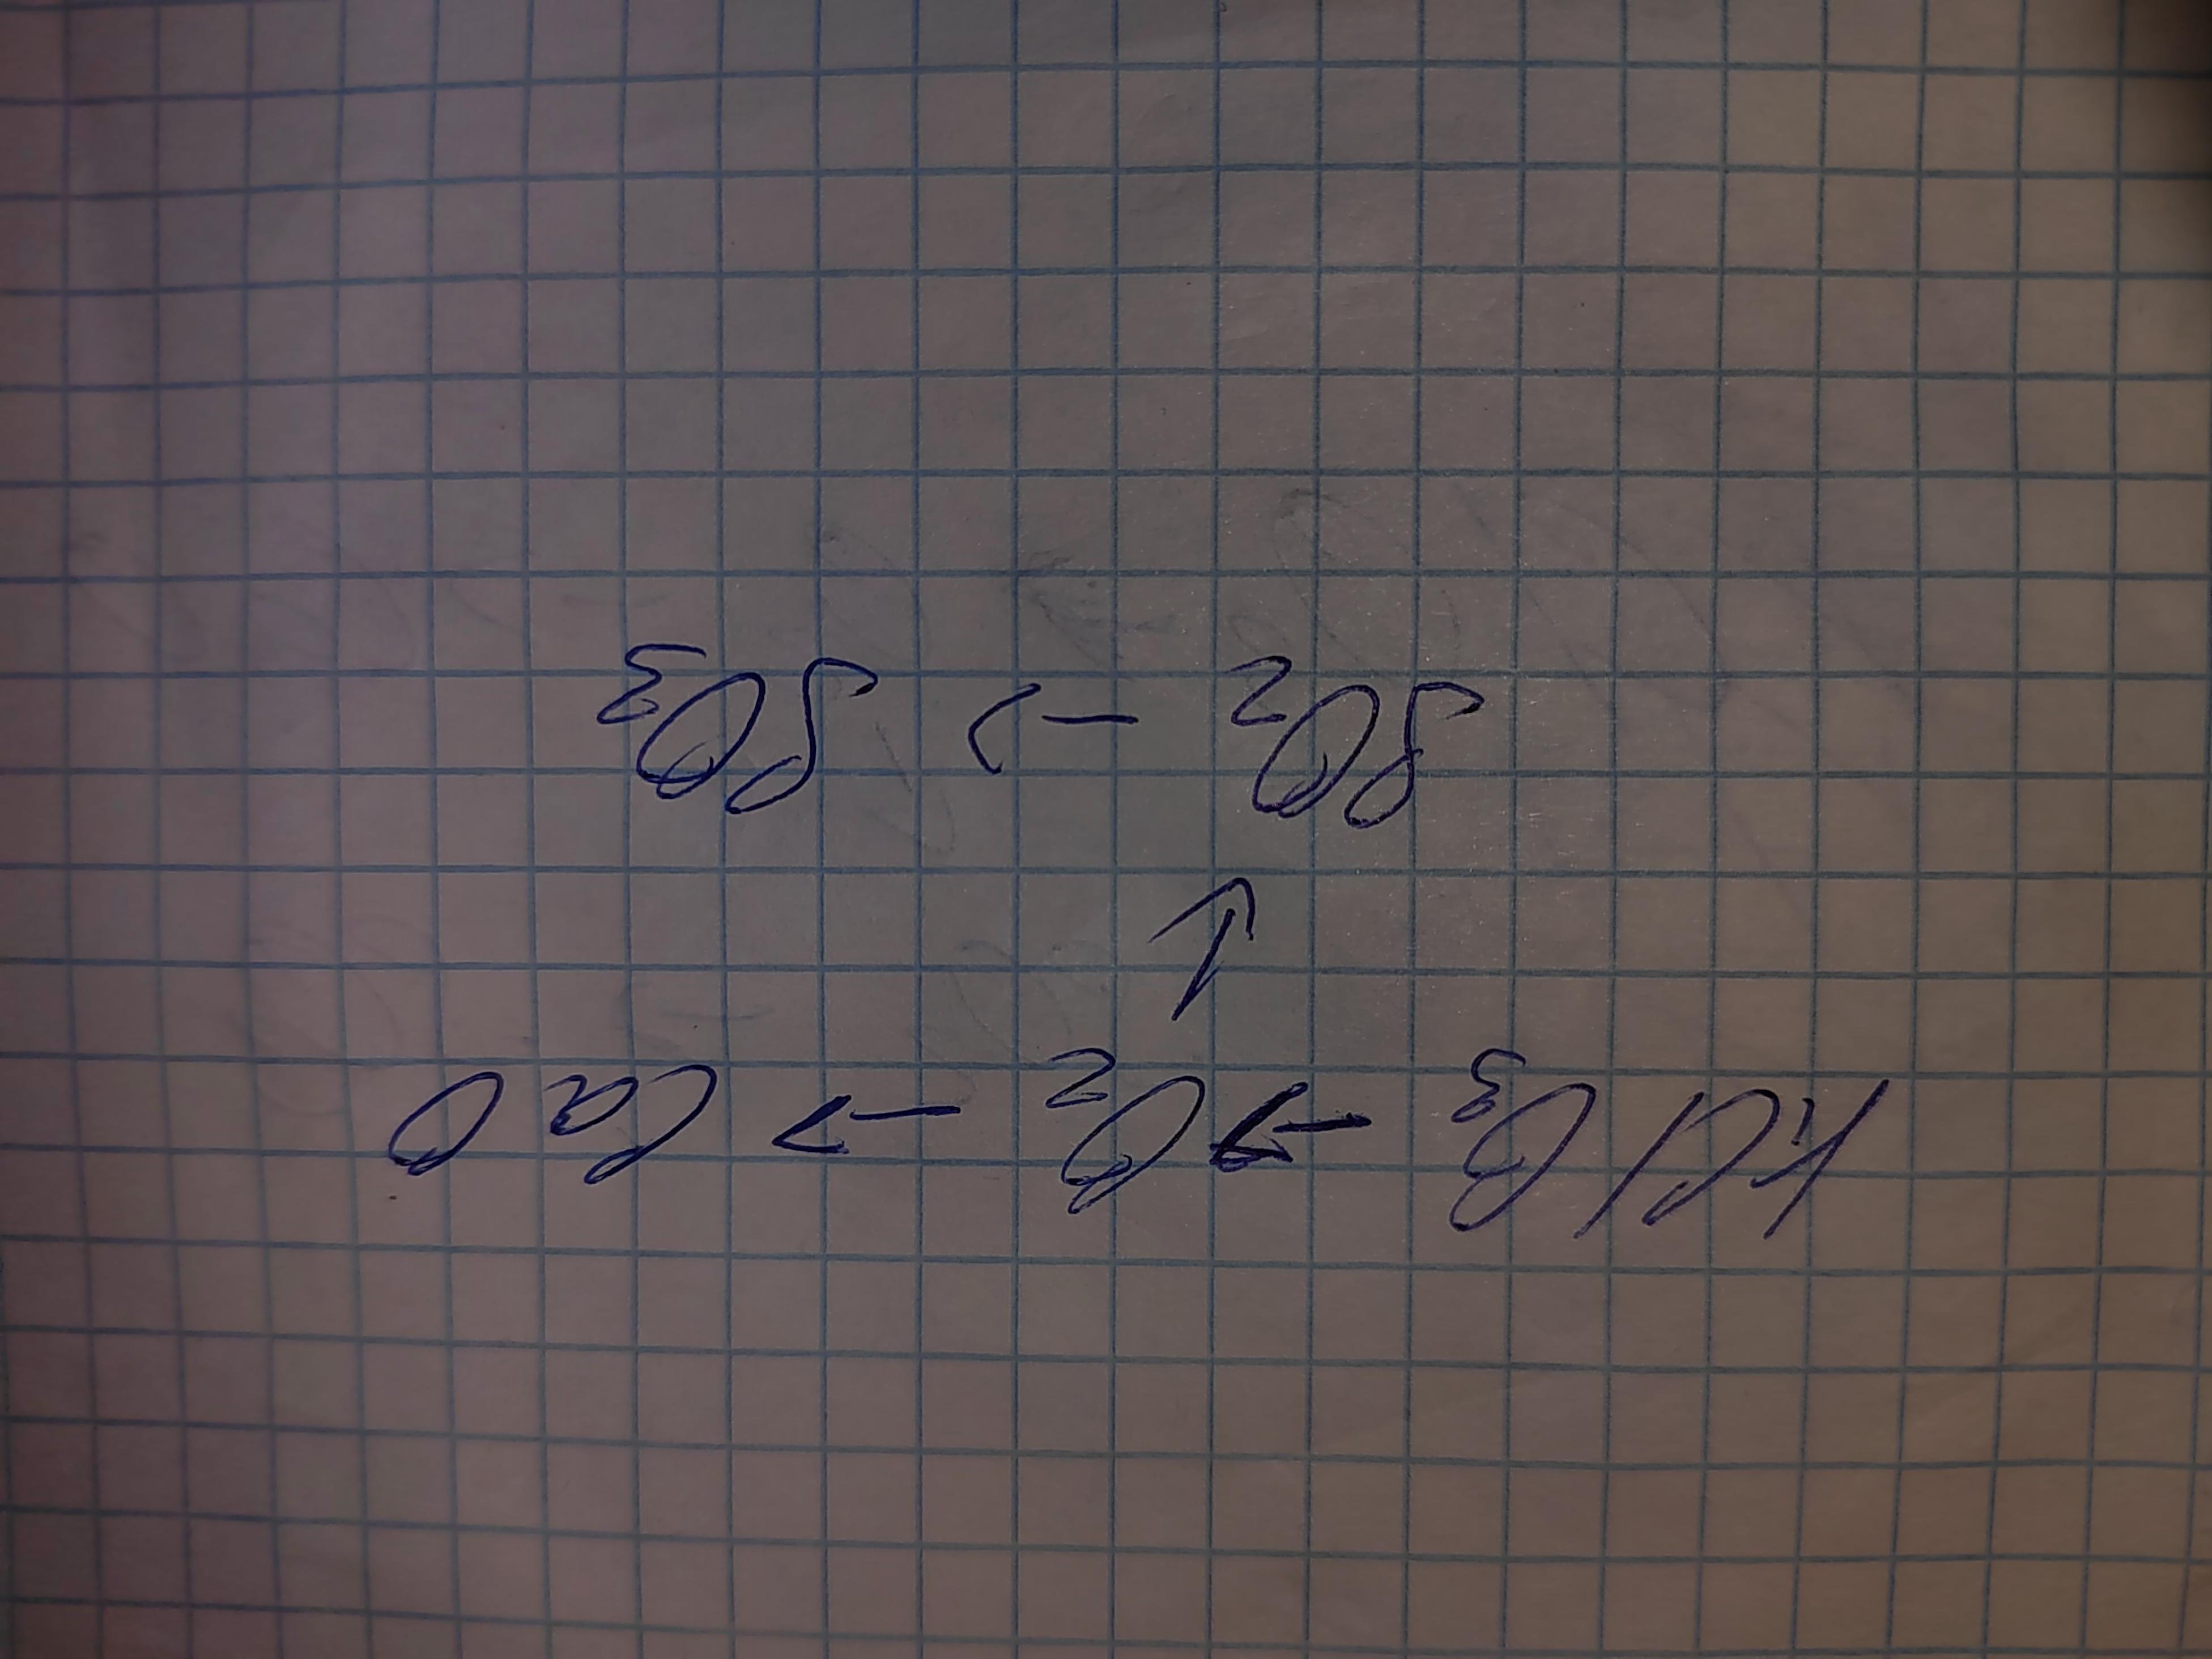 KClO₃ → O₂ → CaO
↓
SO₂ → SO₃